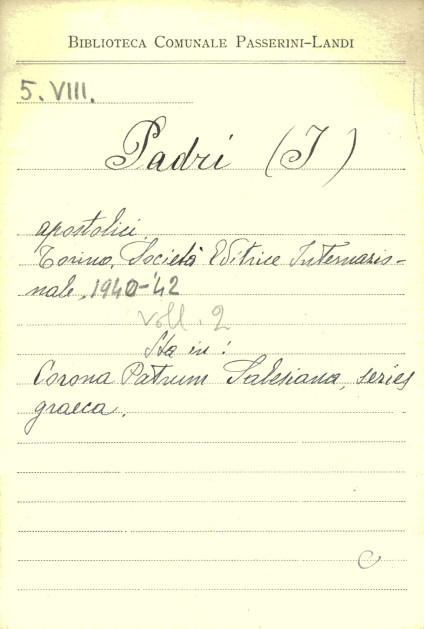 BIBLIOTECA COMUNALE PASSERINI-LANDI
5.VIII.
Padri (I)
apostolici.
Torino, Società Editrice Internazio-
nale, 1940-'42
voll. 2
Sta in:
Corona Patrum Salesiana, series
graeca.
C